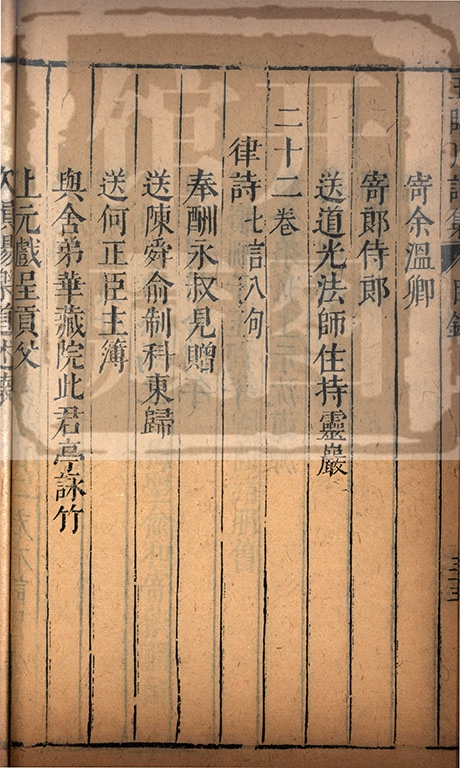 寄余溫卿
寄郎侍郎
送道光法師住持靈巖
二十二卷
律詩七言八句
奉酬永叔見贈
送陳舜俞制科東歸
送何正臣主簿
與舍弟華藏院此君亭詠竹
上元戲呈貢父